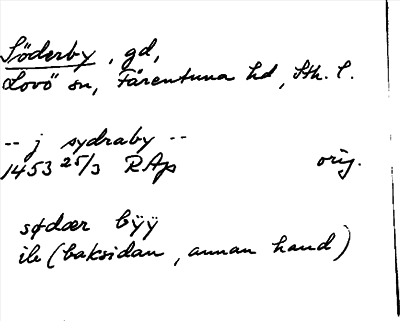 Söderby, gd,
Lovö sn, Färentuna hd, Sth. l.
-- j sydraby --
1453 25/3 RAp orig.
sødær bÿÿ
ib (baksidan, annan hand)